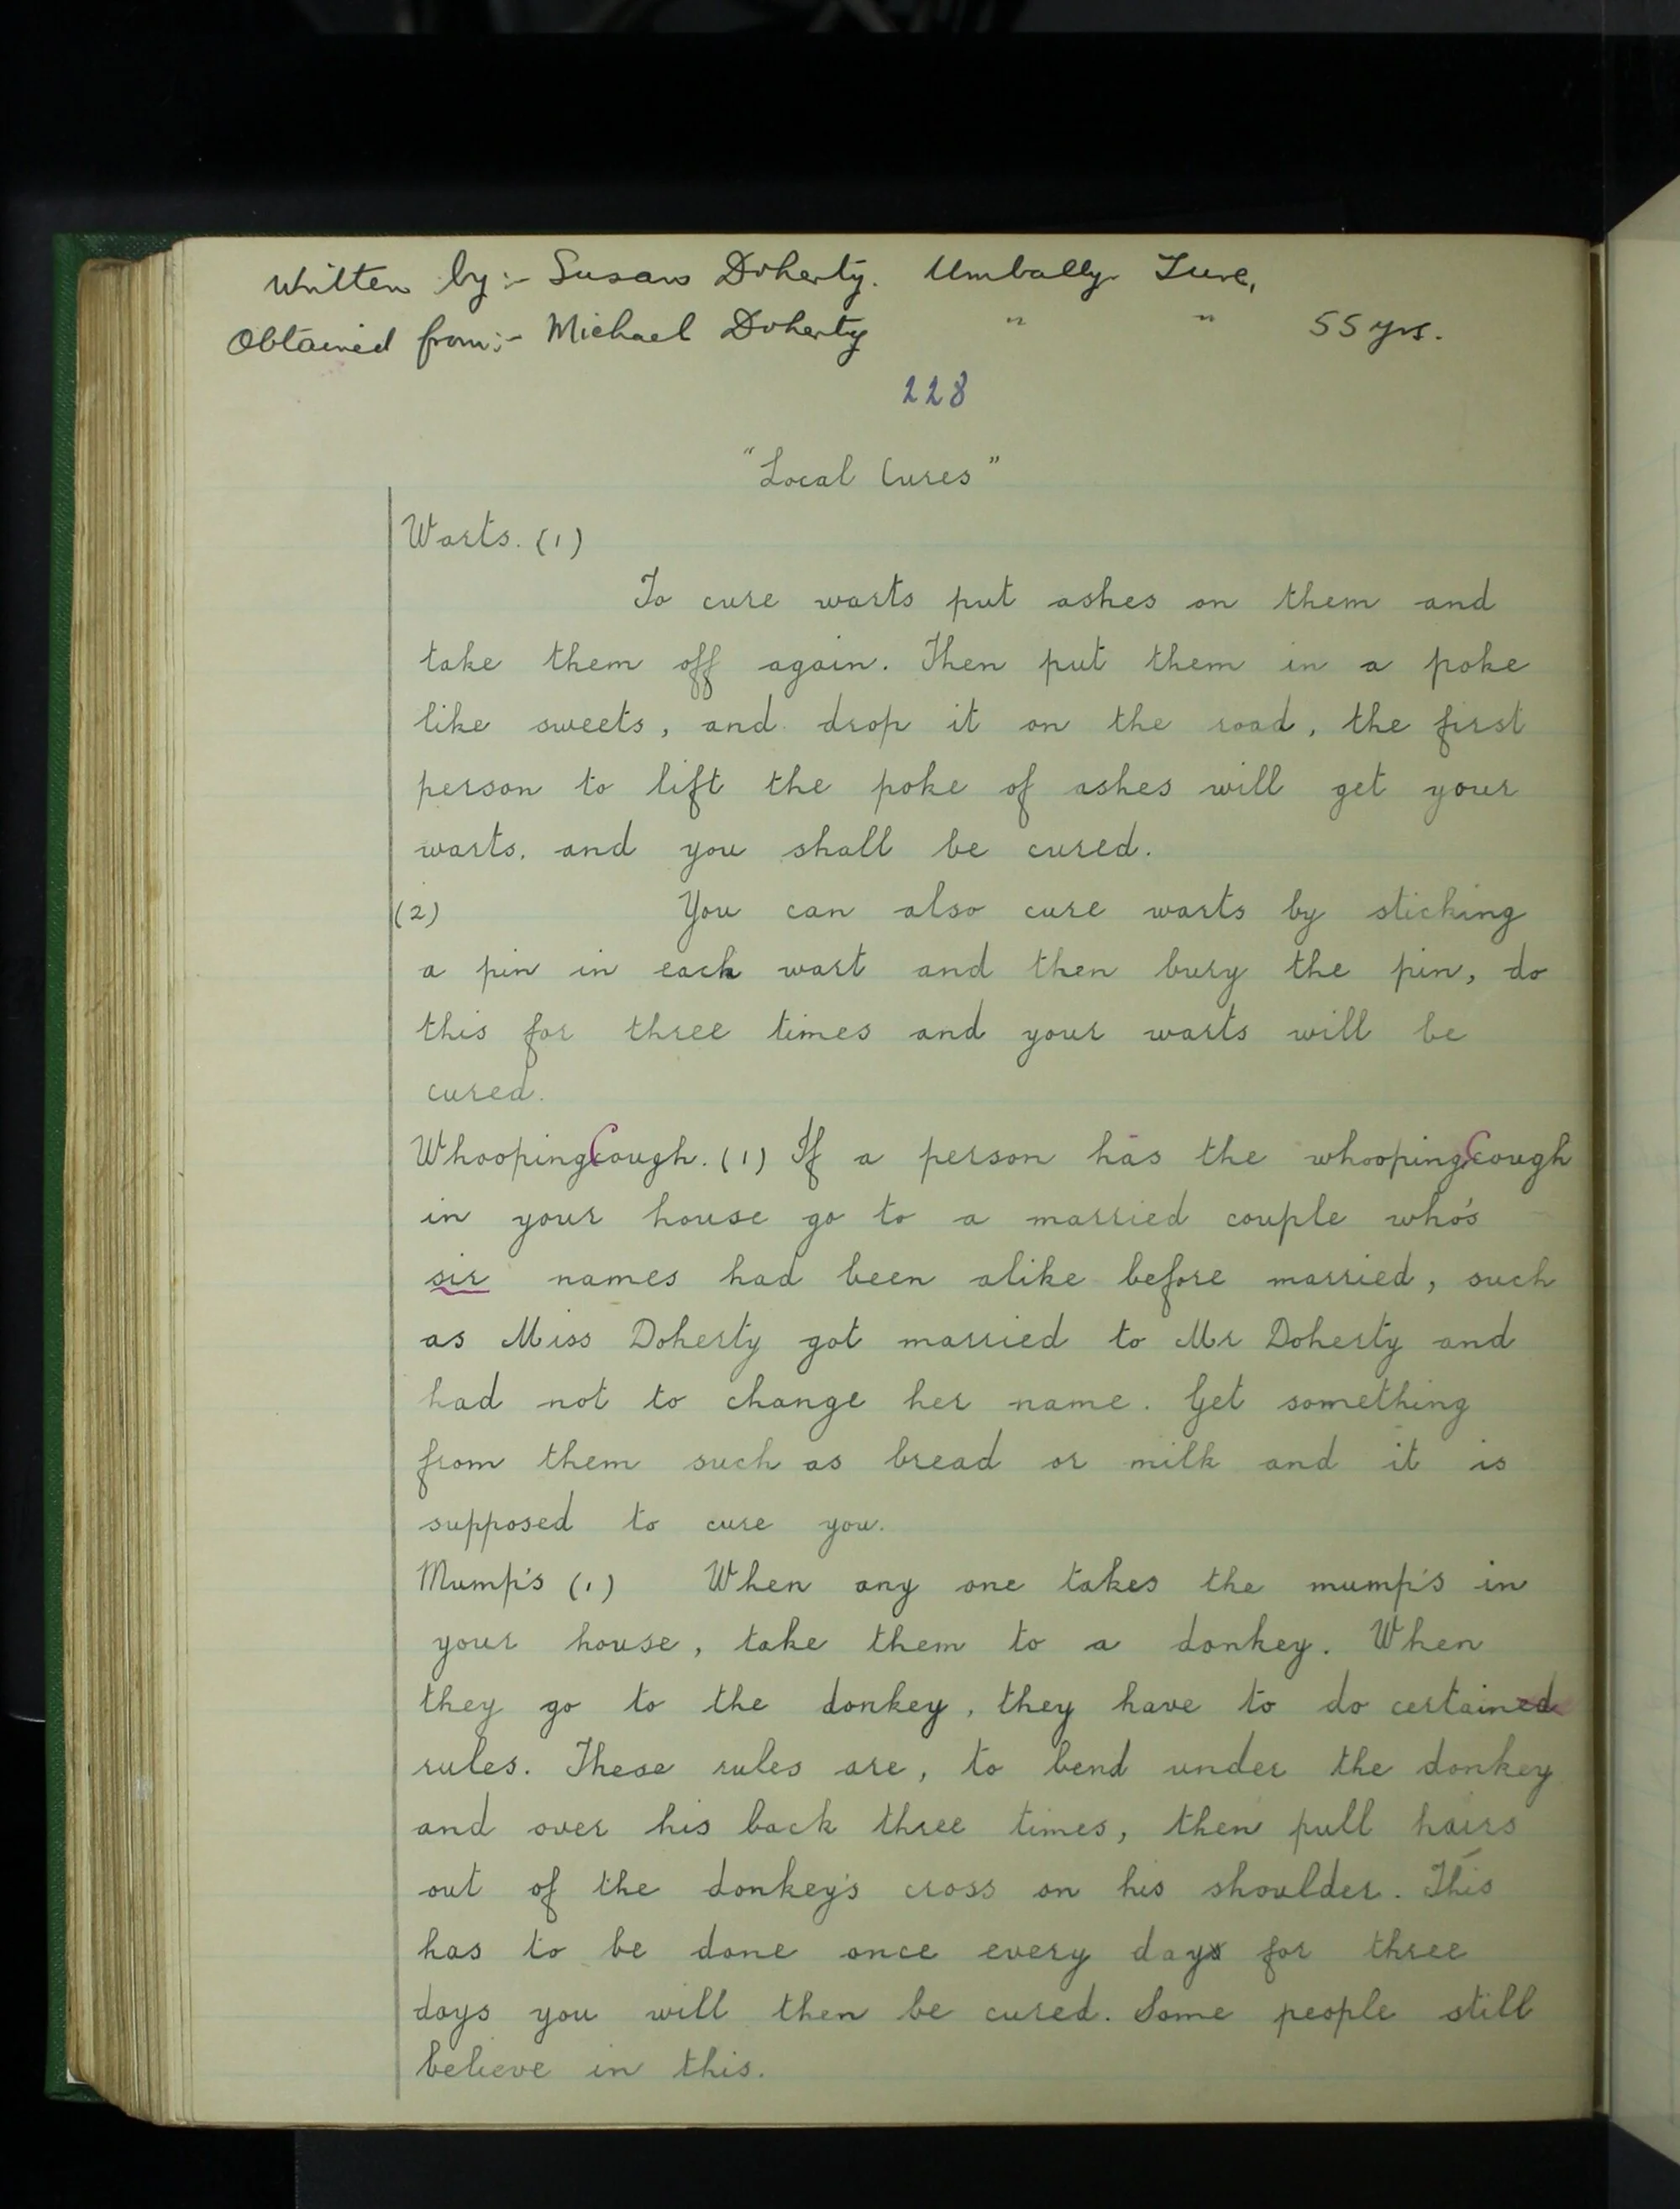 Written by:- Susan Doherty. Umbally Ture,
Obtained from:- Michael Doherty " " 55 yrs.
228
"Local Cures"
Warts. (1)
To cure warts put ashes on them and
take them off again. Then put them in a poke
like sweets, and drop it on the road, the first
person to lift the poke of ashes will get your
warts, and you shall be cured.
(2) You can also cure warts by sticking
a pin in each wart and then bury the pin, do
this for three times and your warts will be
cured.
Whooping Cough. (1) If a person has the whooping Cough
in your house go to a married couple who's
sir names had been alike before married, such
as Miss Doherty got married to Mr Doherty and
had not to change her name. Get something
from them such as bread or milk and it is
supposed to cure you.
Mump's (1) When any one takes the mump's in
your house, take them to a donkey. When
they go to the donkey, they have to do certained
rules. These rules are, to bend under the donkey
and over his back three times, then pull hairs
out of the donkey's cross on his shoulder. This
has to be done once every day for three
days you will then be cured. Some people still
believe in this.